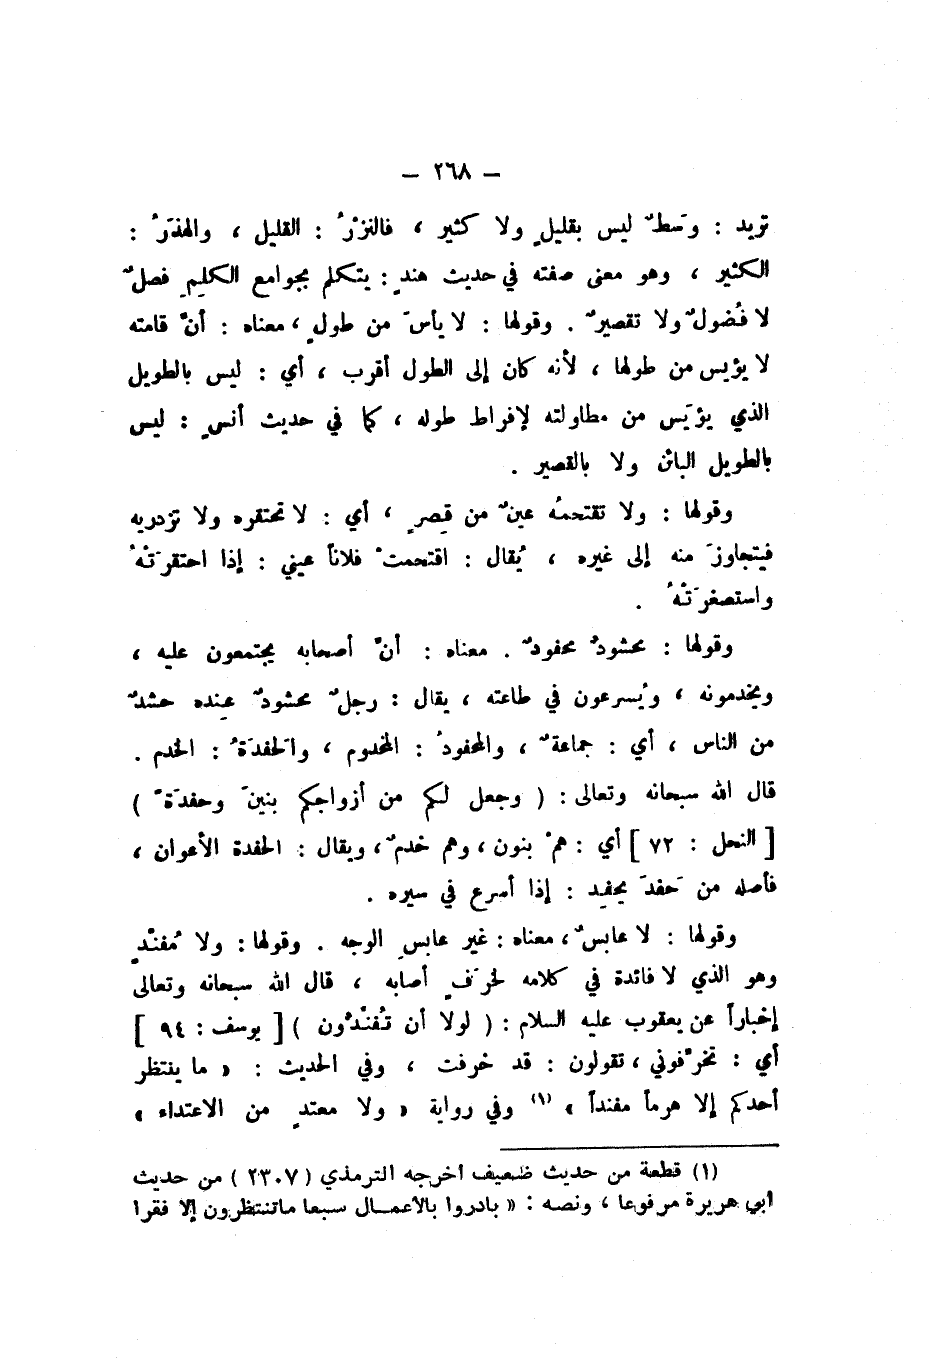 — ٢٦٨ —
تريد : وَسطٌ ليس بقليلٍ ولا كثير ، فالنزْرُ : القليل ، والهذَرُ :
الكثير ، وهو معنى صفته في حديث هندٍ : يتكلم بجوامع الكلِمِ فصلٌ
لا فُضولٌ ولا تقصيرٌ . وقولها : لا يأسَ من طولٍ ، معناه : أنَّ قامته
لا يؤيس من طولها ، لأنه كان إلى الطول أقرب ، أي : ليس بالطويل
الذي يؤيَس من مطاولته لإفراط طوله ، كما في حديث أنسٍ : ليس
بالطويل البائن ولا بالقصير .
وقولها : ولا تقتحمُه عينٌ من قِصرٍ ، أي : لا تحتقره ولا تزدريه
فيتجاوزَ منه إلى غيره ، يُقال : اقتحمتْ فلاناً عيني : إذا احتقرَتْهُ
واستصغرَتْهُ .
وقولها : محشودٌ محفودٌ . معناه : أنَّ أصحابه يجتمعون عليه ،
ويخدمونه ، ويُسرعون في طاعته ، يقال : رجلٌ محشودٌ عِنده حشدٌ
من الناس ، أي : جماعةٌ ، والمحفودُ : المخدوم ، والَحفدَةُ : الخدم .
قال الله سبحانه وتعالى : ( وجعل لكم من أزواجكم بنينَ وحفدَةً )
[ النحل : ٧٢ ] أي : همْ بنون ، وهم خدمٌ ، ويقال : الحفدة الأعوان ،
فأصله من حَفدَ يحفِد : إذا أسرع في سيره .
وقولها : لا عابسٌ ، معناه : غير عابسِ الوجه . وقولها : ولا مُفنّدٍ
وهو الذي لا فائدة في كلامه لخرَفٍ أصابه ، قال الله سبحانه وتعالى
إخباراً عن يعقوب عليه السلام : ( لولا أن تُفنْدُون ) [ يوسف : ٩٤ ]
أي : تخرْفوني ، تقولون : قد خَرفت ، وفي الحديث : « ما ينتظر
أحدكم إلا هرماً مفنداً » (١) وفي رواية « ولا معتدٍ من الاعتداء »
(١) قطعة من حديث ضعيف أخرجه الترمذي ( ٢٣٠٧ ) من حديث
أبي هريرة مرفوعا ، ونصه : « بادروا بالأعمــال سبعا ماتنتظرون إلا فقرا